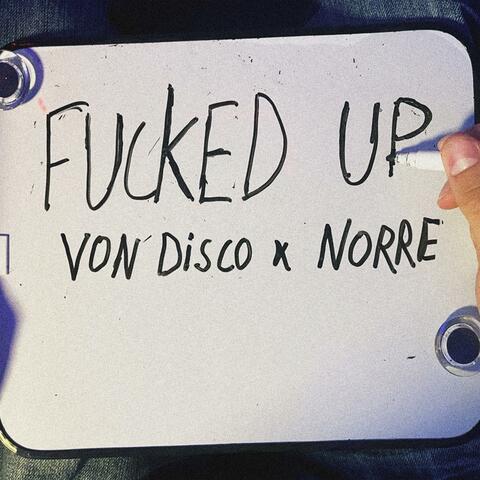 FUCKED UP
VON DiSCO x NORRE